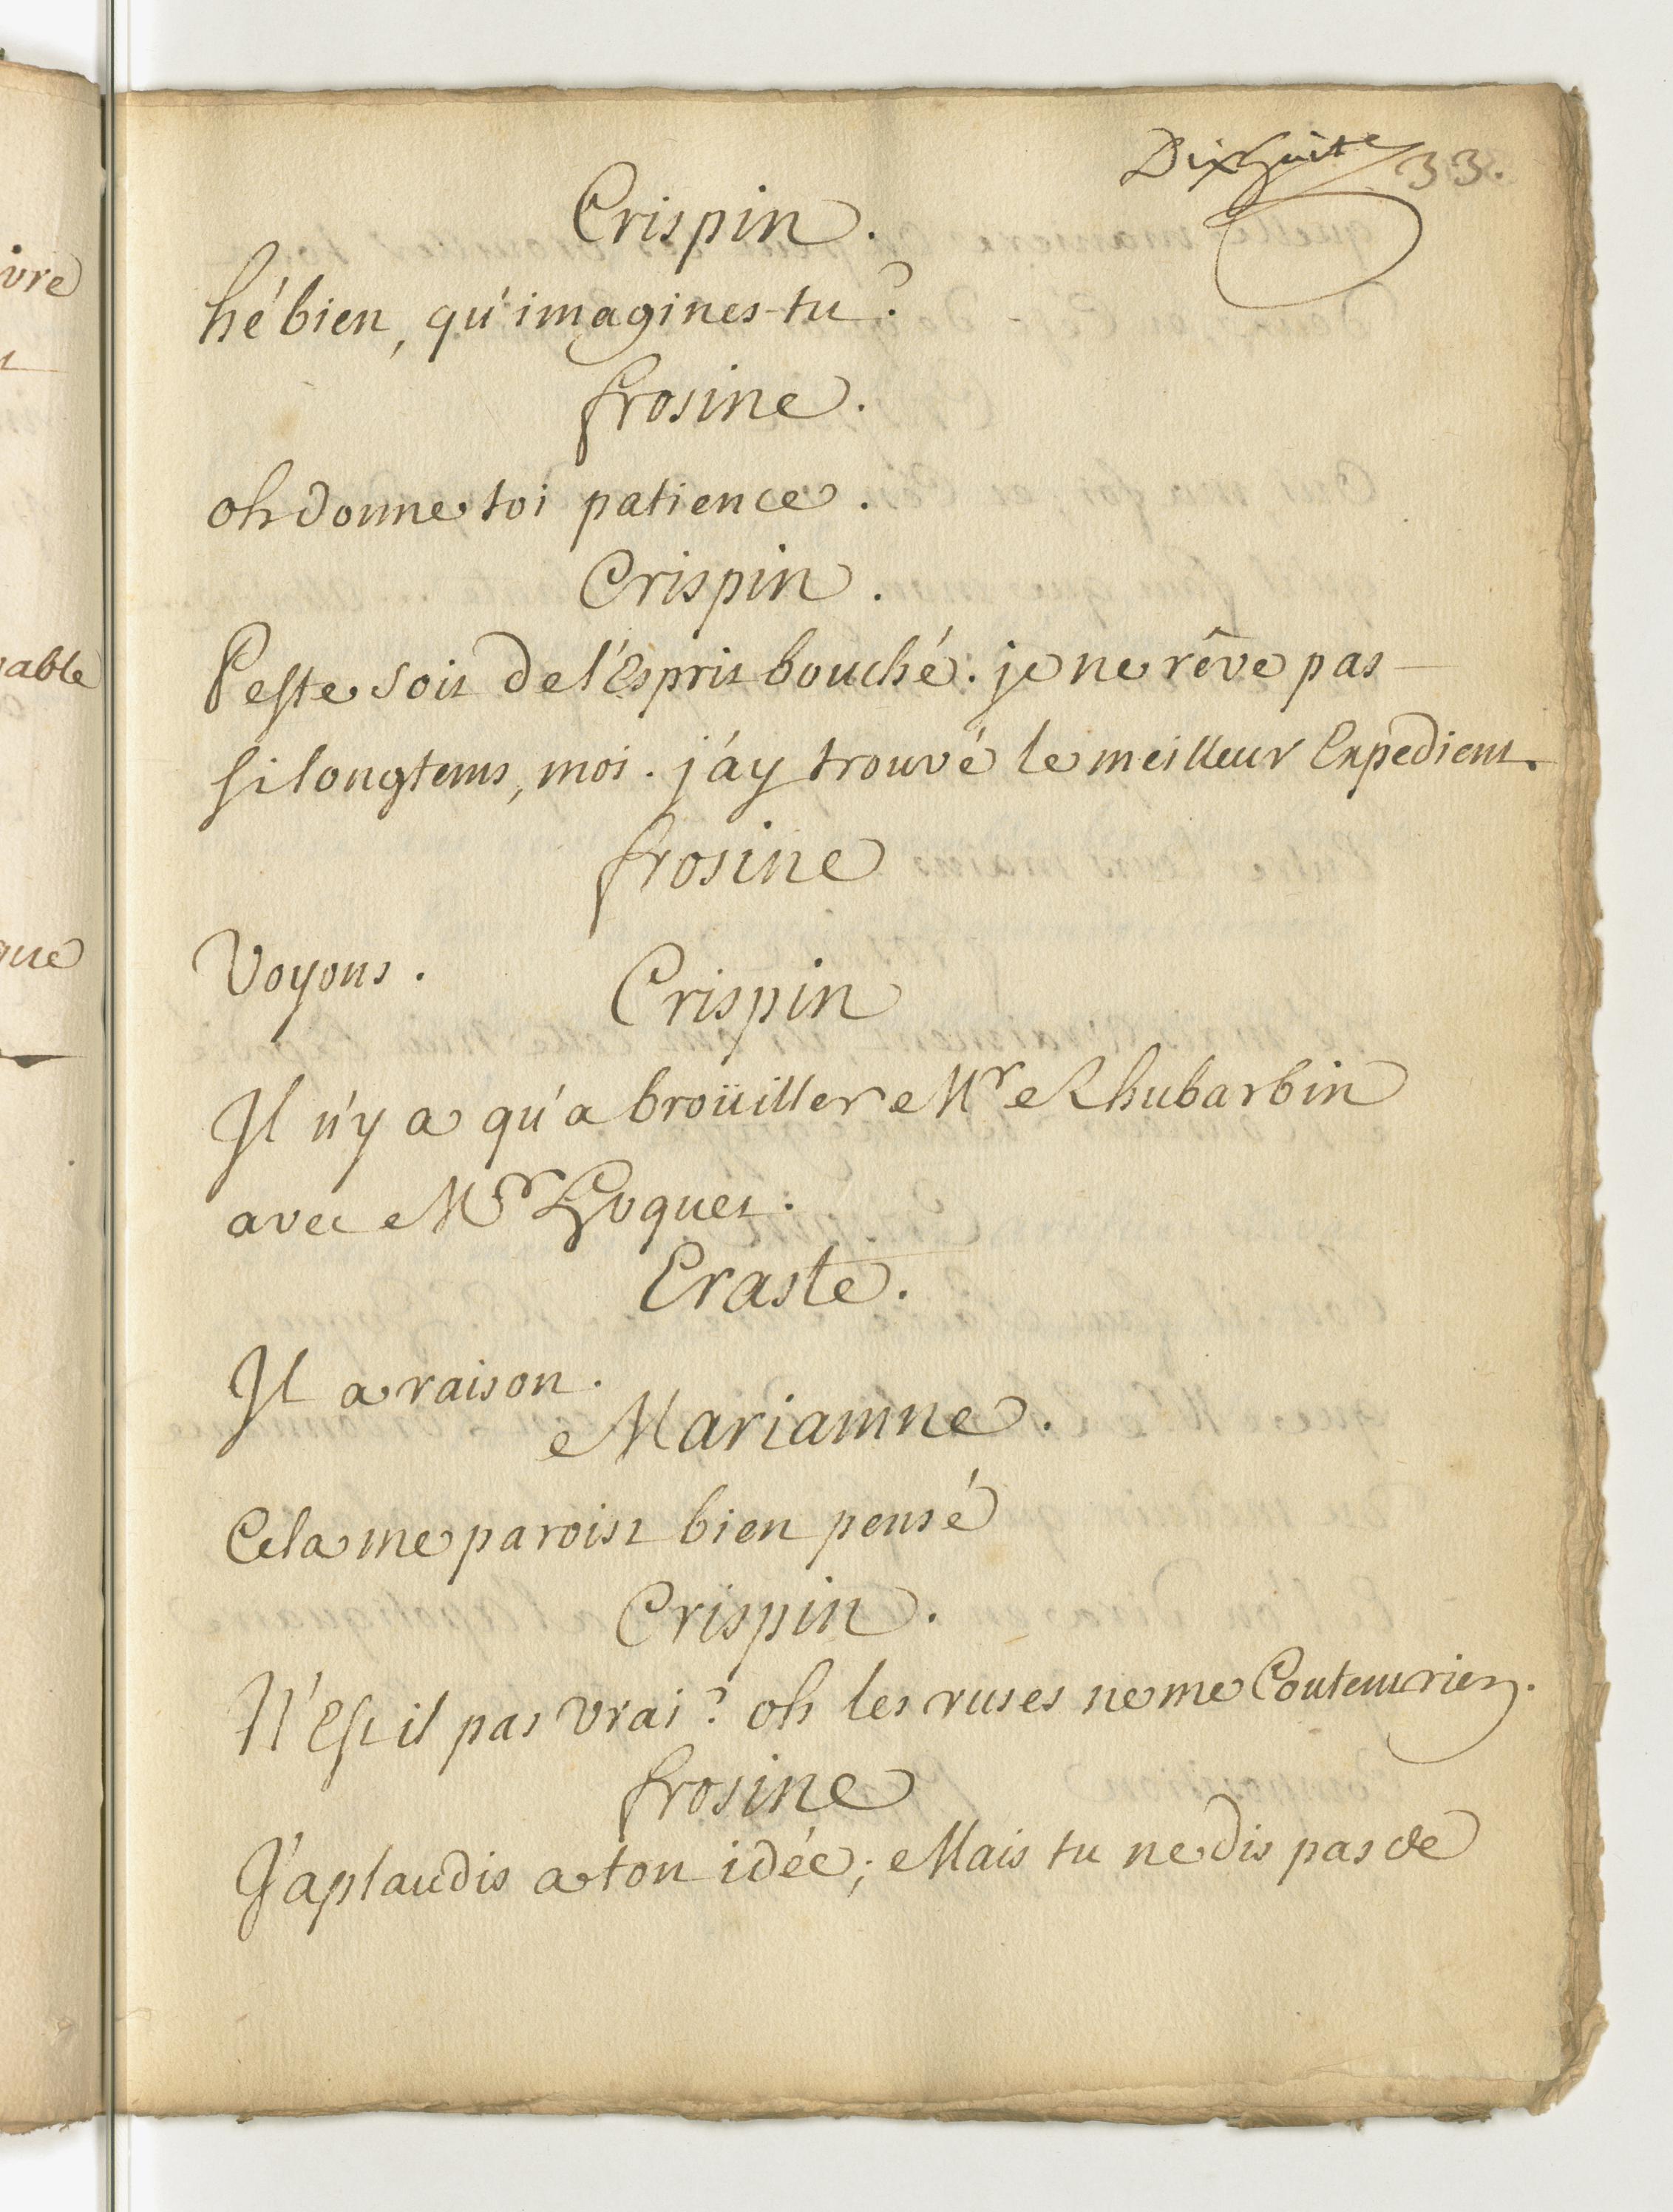 Dixhuite 33.
Crispin.
hé bien, qu'imagines-tu?
frosine.
oh donne toi patience.
Crispin.
Peste soit de l'Esprit bouché. je ne rêve pas
si longtems, moi. j'ay trouvé le meilleur Expedient.
frosine
Voyons.
Crispin
Il n'y a qu'a broüiller Mr Rhubarbin
avec Mr Huguet.
Eraste.
Il a raison.
Mariamne.
Cela me paroist bien pensé
Crispin.
N'Est il pas vrai? oh les ruses ne me Coutent rien.
frosine
J'aplaudis a ton idée; Mais tu ne dis pas de
ivre
able
que